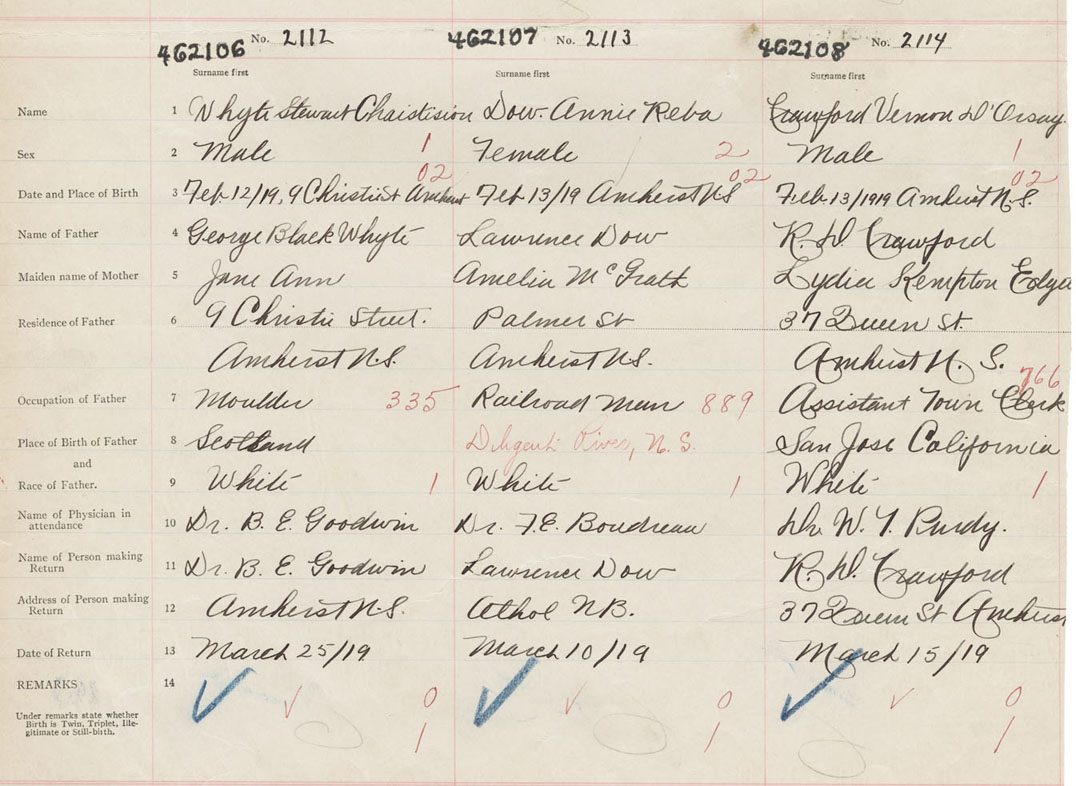 462106 No. 2112 462107 No. 2113 462108 No. 2114
Surname first Surname first Surname first
Name 1 Whyte Stewart Chaistision Dow. Annie Reba Crawford Vernon D'Orsay
Sex 2 Male 1 Female 2 Male 1
02 02 02
Date and Place of Birth 3 Feb 12/19, 9 Christie St Amherst Feb 13/19 Amherst NS Feb 13/1919 Amherst N.S.
Name of Father 4 George Black Whyte Lawrence Dow R. D. Crawford
Maiden name of Mother 5 Jane Ann Amelia McGrath Lydia Kempton
Residence of Father 6 9 Christie Street. Palmer St 37 Queen St.
Amherst N.S. Amherst NS. Amherst N. S.
766
Occupation of Father 7 Moulder 335 Railroad man 889 Assistant Town Clerk
Place of Birth of Father 8 Scotland Diligent River, N.S. San Jose California
and
Race of Father. 9 White 1 White 1 White 1
Name of Physician in
attendance 10 Dr. B. E. Goodwin Dr. F.E. Boudreau Dr W. T. Purdy.
Name of Person making
Return 11 Dr. B. E. Goodwin Lawrence Dow R. D. Crawford
Address of Person making
Return 12 Amherst N.S. Athol NB. 37 Queen St Amherst
Date of Return 13 March 25/19 March 10/19 March 15/19
REMARKS 14 0 0 0
Under remarks state whether
Birth is Twin, Triplet, Ille-
gitimate or Still-birth. 1 1 1